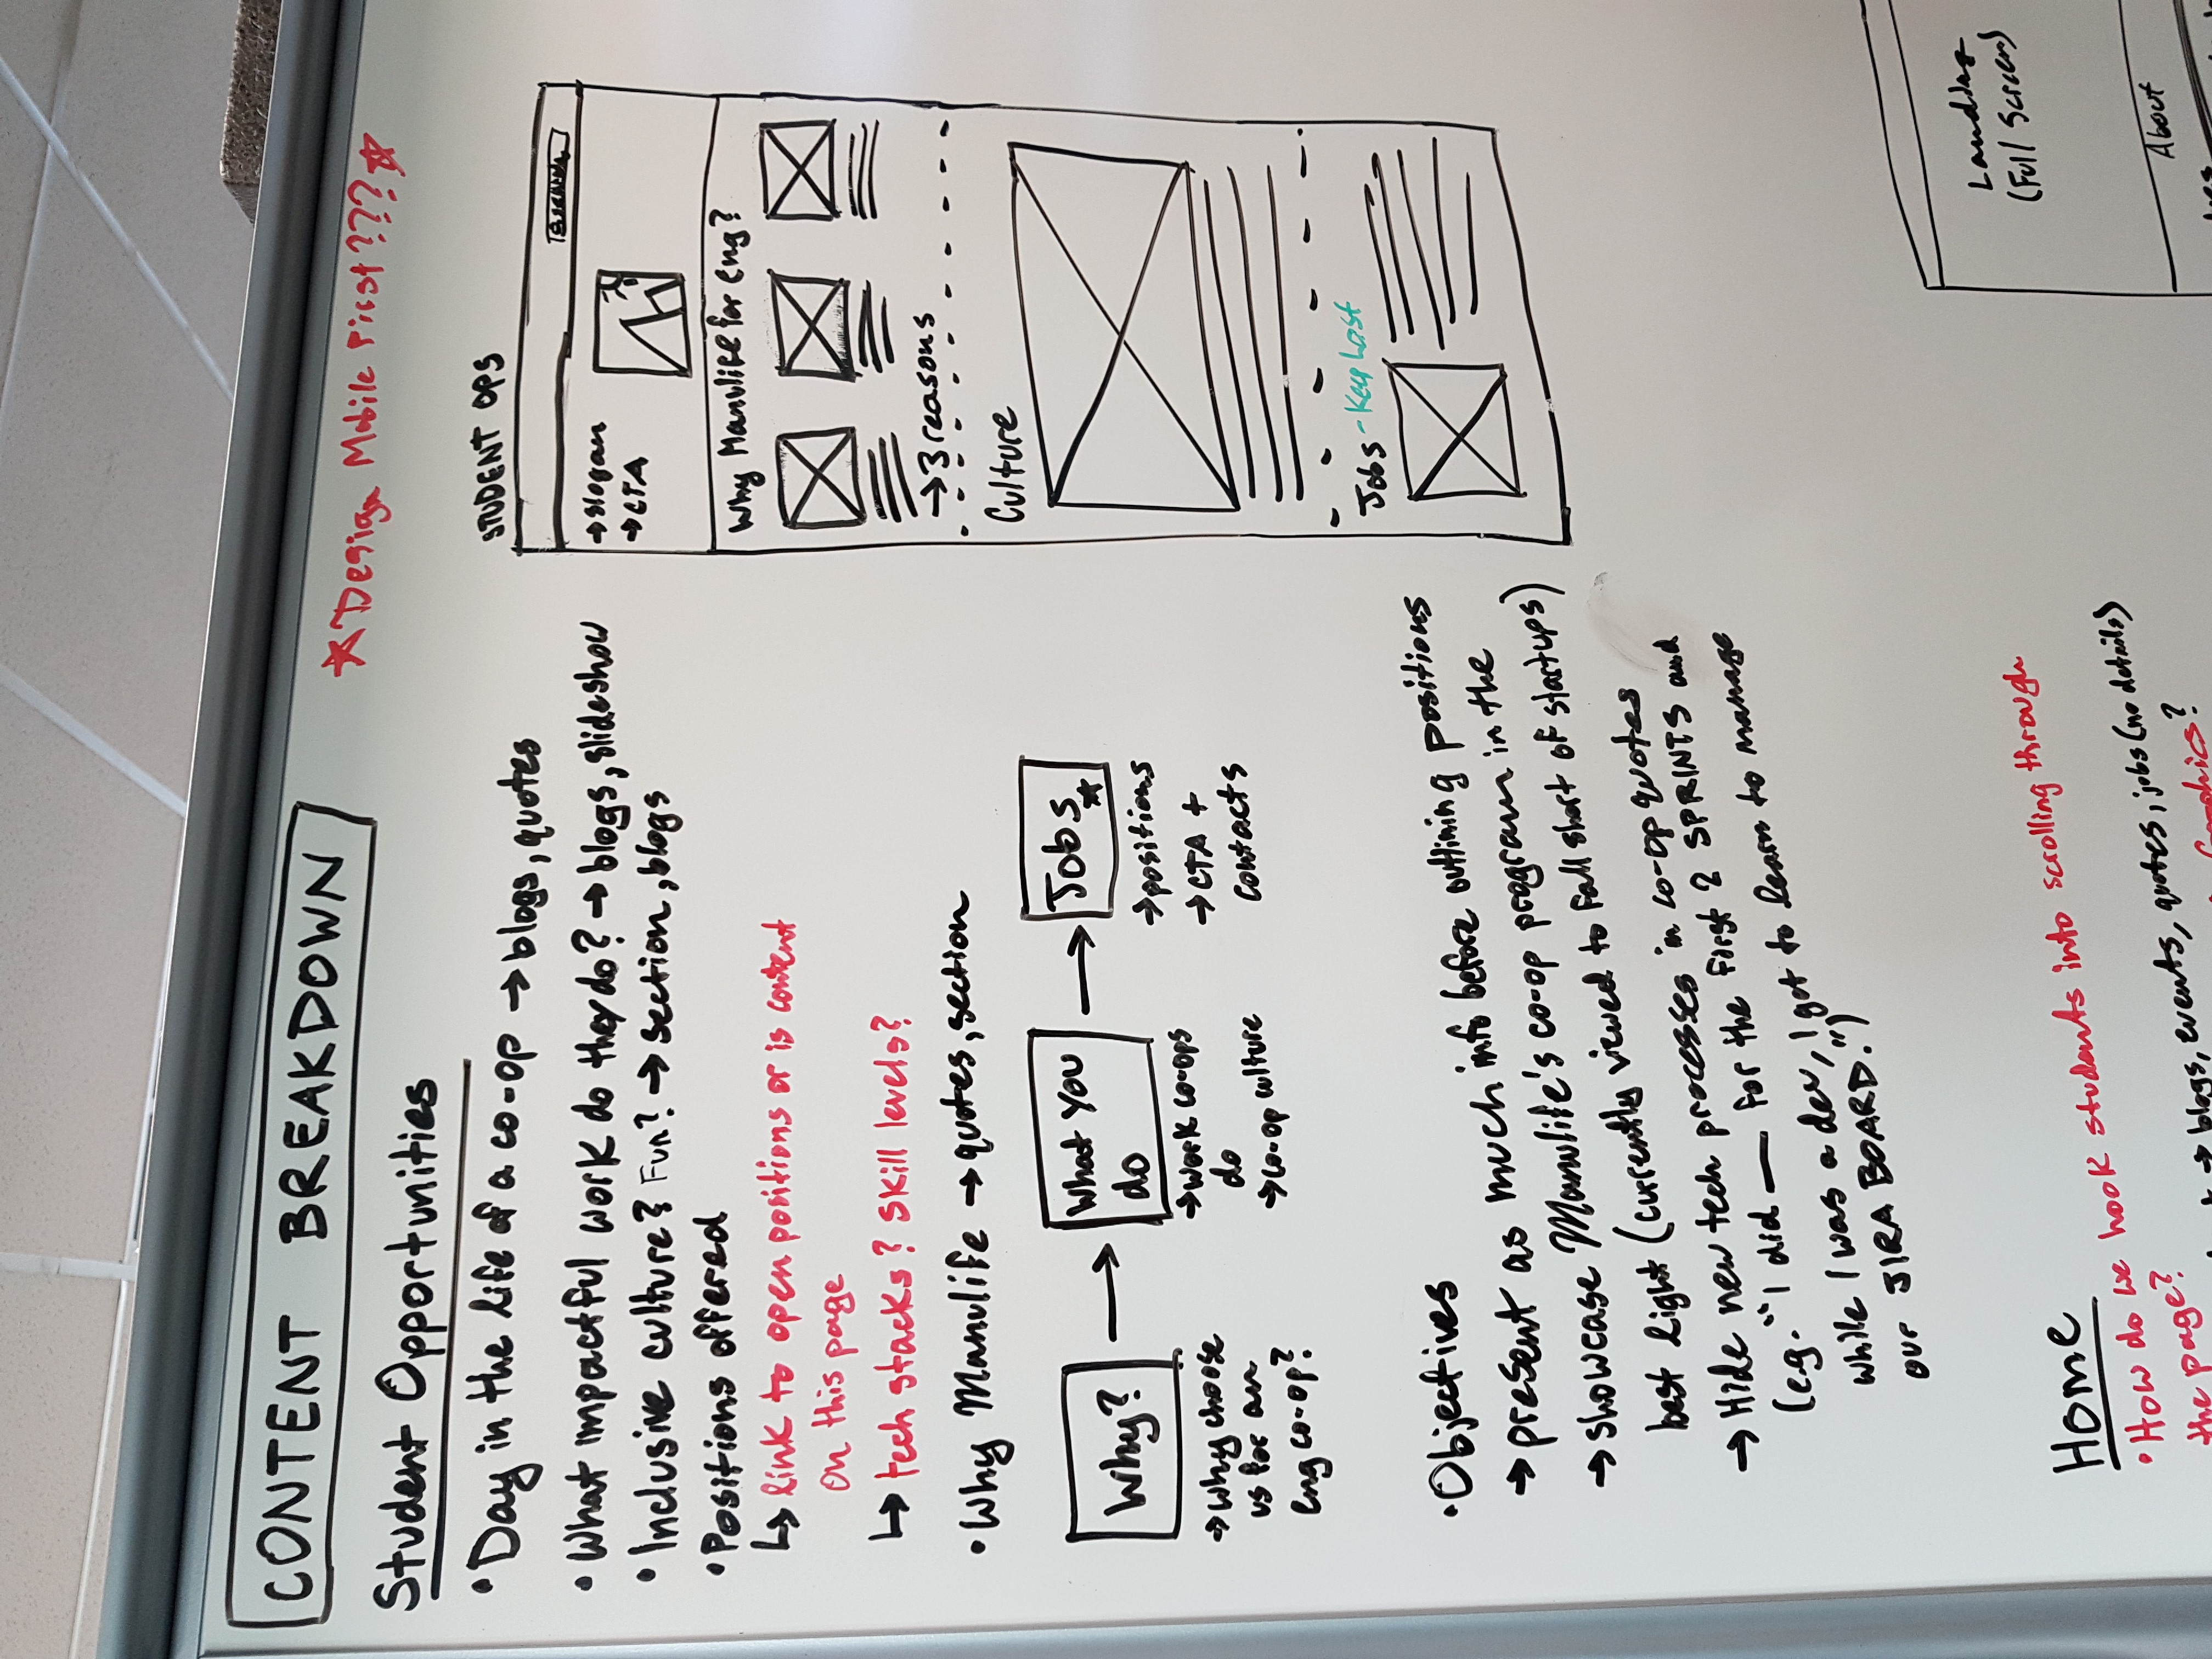 CONTENT BREAKDOWN
☆ Design Mobile First??? ☆
Student Opportunities
• Day in the life of a co-op → blogs, quotes
• What impactful work do they do? → blogs, slideshow
• Inclusive culture? Fun? → section, blogs
• Positions offered
↳ link to open positions or is content
on this page
↳ tech stacks? Skill levels?
• Why Manulife → quotes, section
Why?
→ why choose
us for an
eng co-op?
What you
do
→ work co-ops
do
→ co-op culture
Jobs ★
→ positions
→ CTA +
contacts
• Objectives
→ present as much info before outlining positions
→ showcase Manulife's co-op program in the
best light (currently viewed to fall short of startups)
→ Hide new tech processes in co-op quotes
(e.g. "I did — for the first 2 SPRINTS and
while I was a dev, I got to learn to manage
our JIRA BOARD.")
STUDENT OPS
→ slogan
→ CTA
Why Manulife for eng?
→ 3 reasons
Culture
Jobs - Keep Last
Home
• How do we hook students into scrolling through
the page?
→ blogs, events, quotes, jobs (no details)
Graphics?
Landing
(Full Screen)
About